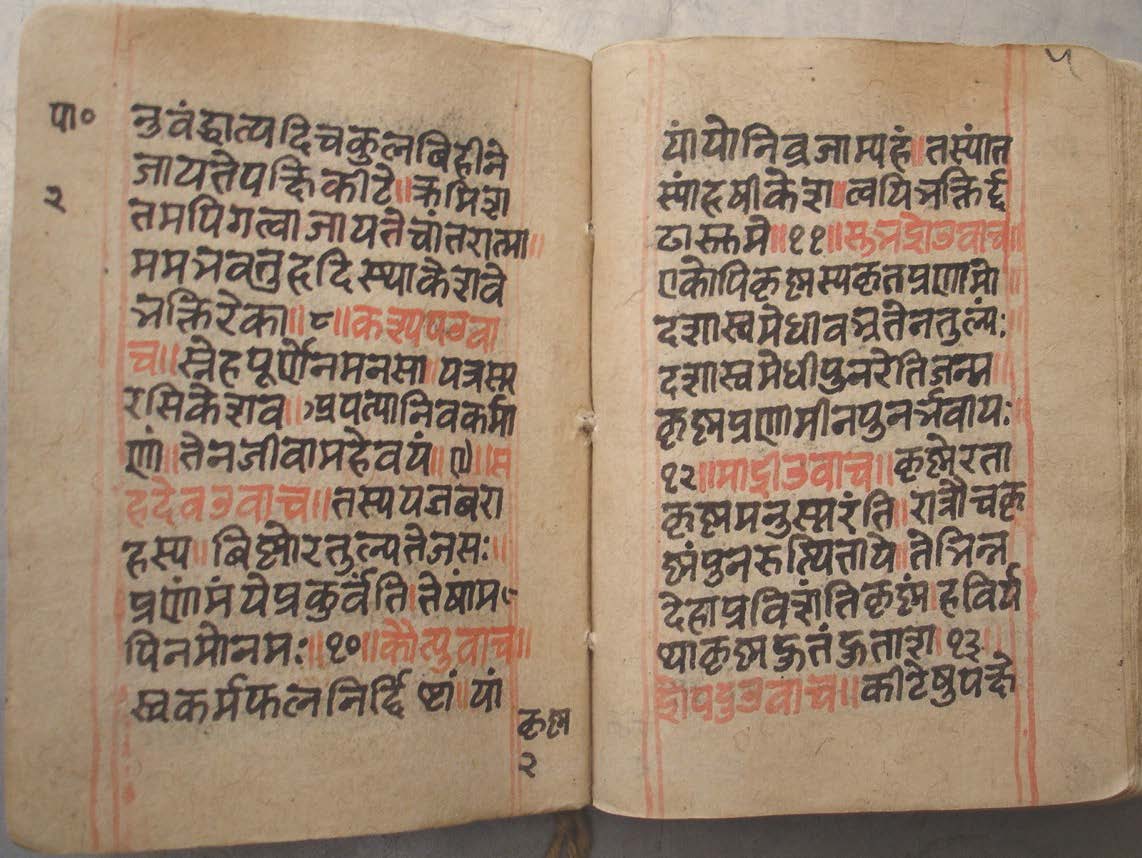 पा०
२
नुवंद्वात्यदिचकुलविहीने
जायतेपक्षिकीटे॥क्रमिश
तमपिगत्वाजायतेचांतरात्मा॥
ममभवतुहृदिस्थाकेशवे
भक्तिरेका॥८॥कश्यपउवा
च॥स्नेहपूर्णेनमनसा॥यत्रस्म
रसिकेशव॥प्रपत्यानिवकर्मा
णां॥तेनजीवामहेवयं॥९॥स
हदेवउवाच॥तस्ययज्ञबरा
हस्य॥बिष्मोरतुल्यतेजसः॥
प्रणांमंयेप्रकुर्वंति॥तेषांम
पिनमोनमः॥१०॥कौत्युवाच॥
स्वकर्मफलनिर्दिष्टां॥यां
कृष्म
२
५
यांयोनिव्रजाम्यहं॥तस्यांत
स्यांहृषीकेश॥त्वयिभक्तिर्दृ
ढास्तमे॥११॥सुभद्रोउवाच॥
एकोपिकृष्मस्यकृतप्रणामो
दशास्वमेधावभृतेनतुल्यः
दशास्वमेधीपुनरेतिजन्म
कृष्मप्रणामीनपुनर्भवायः
१२॥माद्रीउवाच॥कृष्मेरता
कृष्ममनुस्मरंति॥रात्रौचकृ
ष्मंपुनरुत्थितायेतेभिन्न
देहाप्रविशंतिकृष्मं॥हविर्य
थाकृष्मह्रुतंह्रुताश॥१३॥
द्रोपदुउवाच॥कीटेषुपक्षे